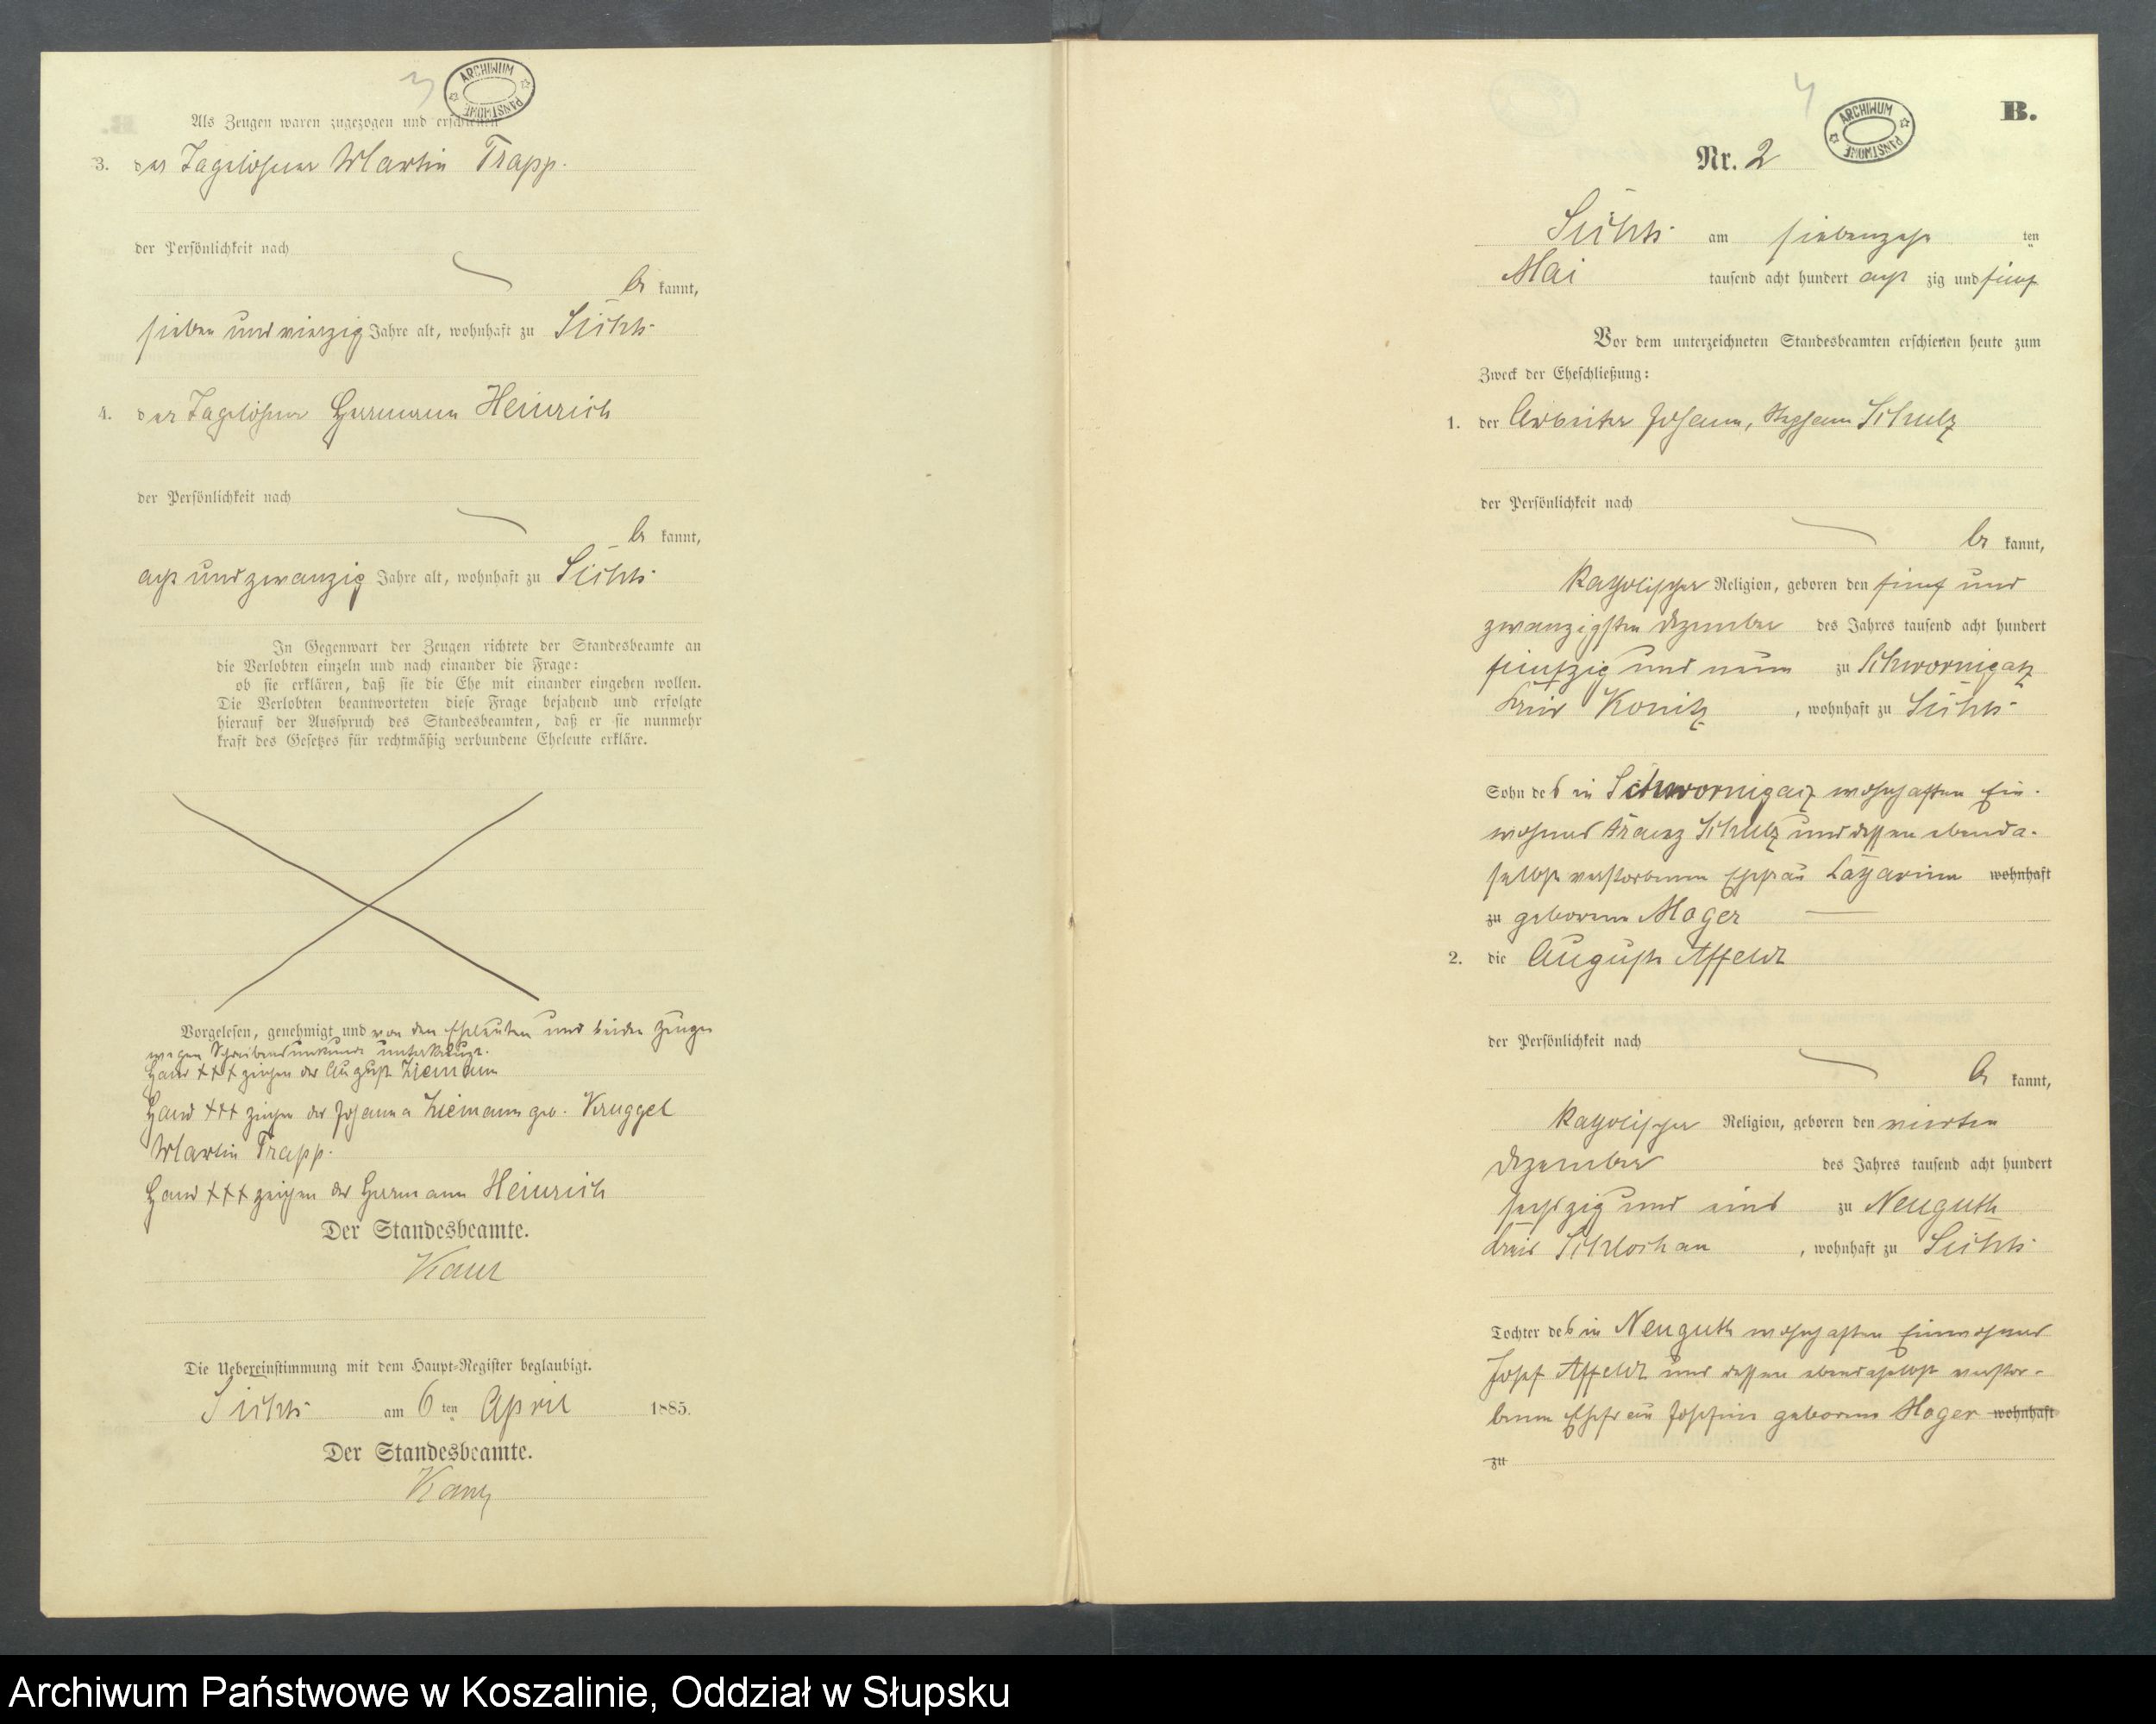 3
ARCHIWUM PAŃSTWOWE
Als Zeugen waren zugezogen und erschienen
3. der Tagelöhner Martin Trapp.
der Persönlichkeit nach
be kannt,
sieben und vierzig Jahre alt, wohnhaft zu
4. der Tagelöhner Hermann Heinrich
der Persönlichkeit nach
be kannt,
acht und zwanzig Jahre alt, wohnhaft zu
In Gegenwart der Zeugen richtete der Standesbeamte an
die Verlobten einzeln und nach einander die Frage:
ob sie erklären, daß sie die Ehe mit einander eingehen wollen.
Die Verlobten beantworteten diese Frage bejahend und erfolgte
hierauf der Ausspruch des Standesbeamten, daß er sie nunmehr
kraft des Gesetzes für rechtmäßig verbundene Eheleute erkläre.
Vorgelesen, genehmigt und von den Eheleuten und beiden Zeugen
wegen Schreibensunkunde unterkreuzt.
Hand +++ zeichen des August Ziemann
Hand +++ zeichen der Johanna Ziemann geb. Kruggel
Martin Trapp.
Hand +++ zeichen des Hermann Heinrich
Der Standesbeamte.
Die Uebereinstimmung mit dem Haupt-Register beglaubigt.
am 6 ten April 1885.
Der Standesbeamte.
4
ARCHIWUM PAŃSTWOWE
B.
Nr. 2
am siebenzehn ten
Mai tausend acht hundert acht zig und fünf
Vor dem unterzeichneten Standesbeamten erschienen heute zum
Zweck der Eheschließung:
1. der Arbeiter Johann, Stephan Schulz
der Persönlichkeit nach
be kannt,
katholischer Religion, geboren den fünf und
zwanzigsten Dezember des Jahres tausend acht hundert
fünfzig und neun zu Schwornigatz
Kreis Konitz, wohnhaft zu
Sohn des in Schwornigatz wohnhaften Ein-
wohners Franz Schulz und dessen ebenda-
selbst verstorbenen Ehefrau Catharina wohnhaft
zu geborene Mager
2. die Auguste Affeldt
der Persönlichkeit nach
be kannt,
katholischer Religion, geboren den vierten
Dezember des Jahres tausend acht hundert
sechszig und eins zu Neuguth
Kreis Schlochau, wohnhaft zu
Tochter des in Neuguth wohnhaften Einwohners
Josef Affeldt und dessen ebendaselbst verstor-
benen Ehefrau Josefine geborene Mager wohnhaft
zu
Archiwum Państwowe w Koszalinie, Oddział w Słupsku